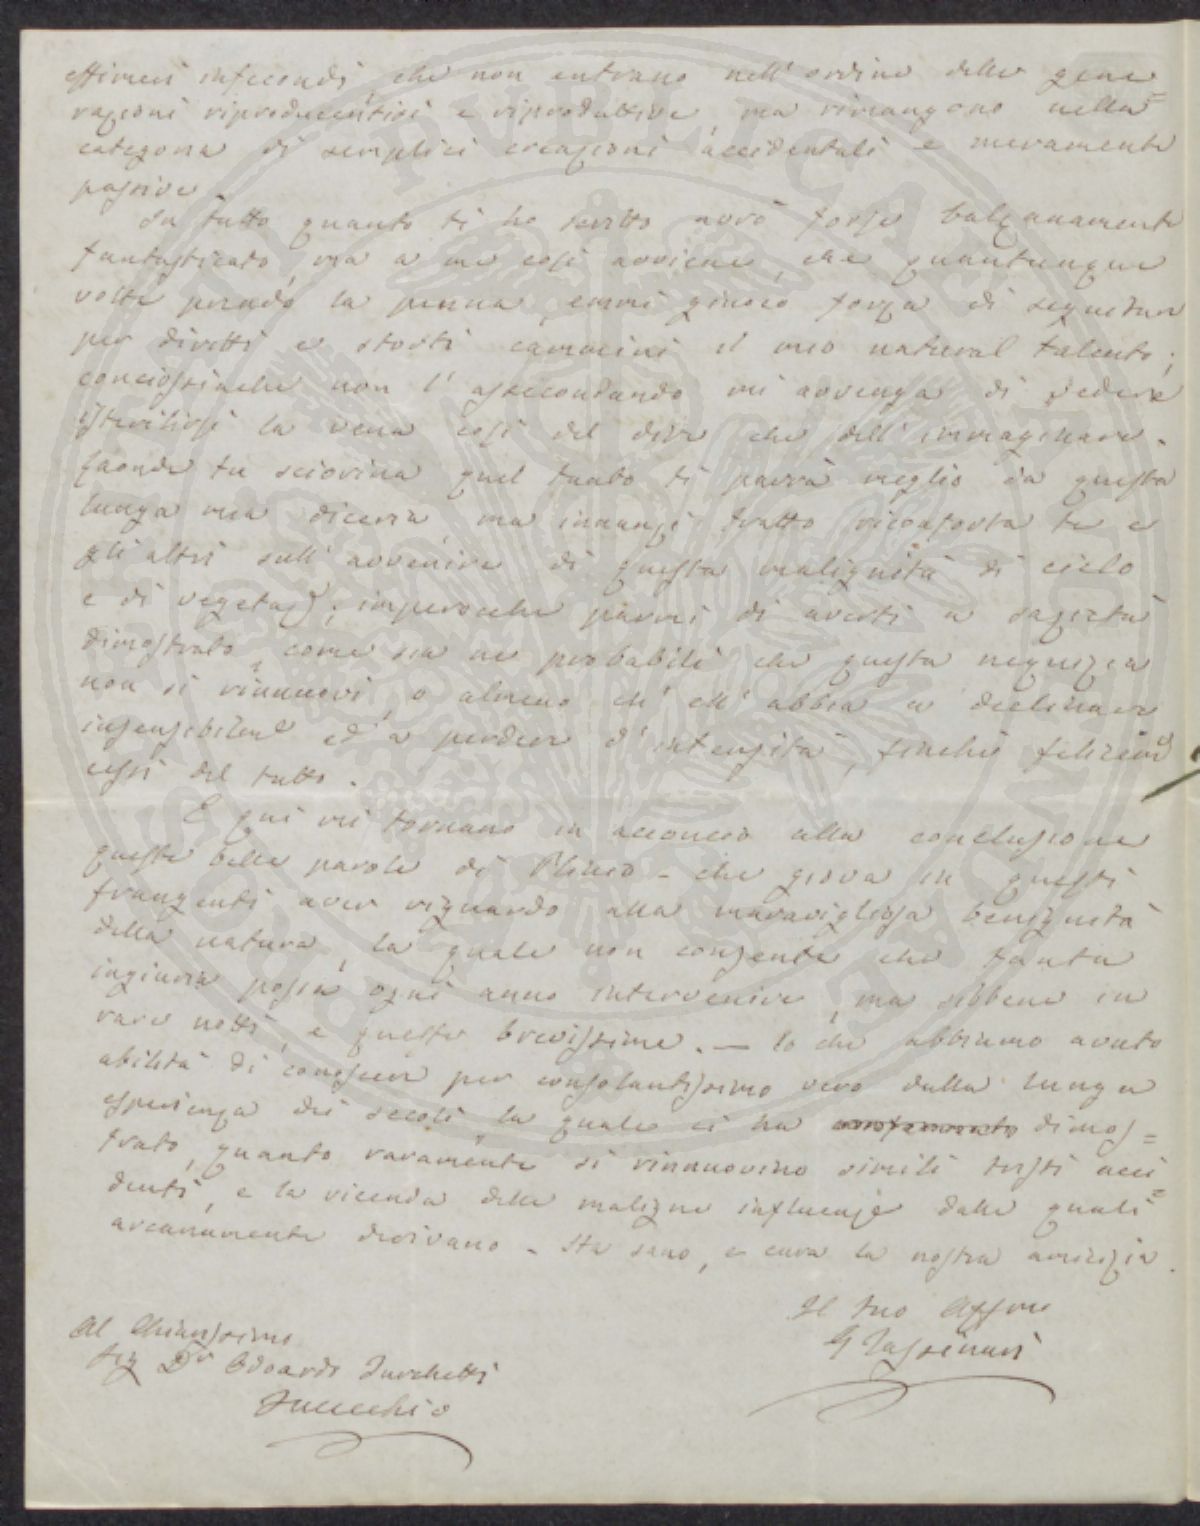 effimeri infecondi, che non entrano nell'ordine delle gene=
razioni riproducentisi e riproduttive, ma rimangono nella
categoria di semplici creazioni accidentali e meramente
passive.
In tutto quanto ti ho scritto avrò forse balzanamente
fantasticato, ma a me così avviene, che quantunque
volte prendo la penna, emmi giuoco forza di seguitare
per diritti e storti cammini il mio natural talento;
conciossiache non l'assecondando mi avvenga di vedere
isterilirsi la vena così del dire che dell'immaginare.
Laonde tu sciorina quel tanto ti parrà meglio da questa
lunga mia diceria ma innanzi tratto riconforta te e
gli altri sull'avvenire di questa malignità di cielo
e di vegetaz; imperocche parmi di averti a sazietà
dimostrato, come sia ne probabili che questa nequizia
non si rinnuovi, o almeno ch'ell'abbia a declinare
insensibilme ed a perdere d'intensità, finchè felicem
cessi del tutto.
E qui mi tornano in acconcio alla conclusione
queste belle parole di Plinio - che giova in questi
frangenti aver riguardo alla maravigliosa benignità
della natura, la quale non consente che tanta
ingiuria possa ogni anno intervenire, ma sibbene in
rare notti, e queste brevissime. — Lo che abbiamo avuto
abilità di conoscere per consolantissimo vero dalla lunga
esperienza dei secoli, la quale ci ha dimos=
trato, quanto raramente si rinnuovino simili tristi acci=
denti, e la vicenda delle maligne influenze dalle quali
arcanamente derivano. Sta sano, e cura la nostra amicizia.
Il tuo Affmo
G Tassinari
Al Chiarissimo
Sig Dr Odoardo Turchetti
Fucecchio